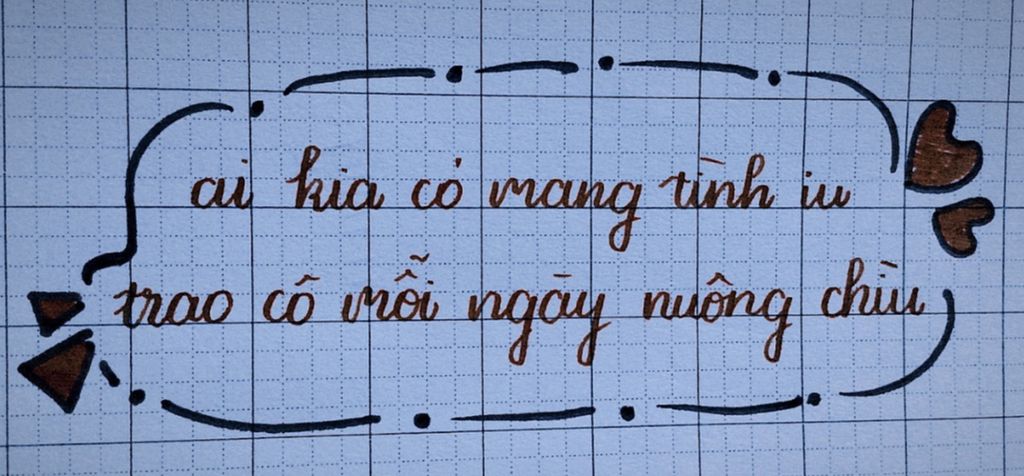 ai kia có mang tình iu
trao cô mỗi ngày nuông chìu